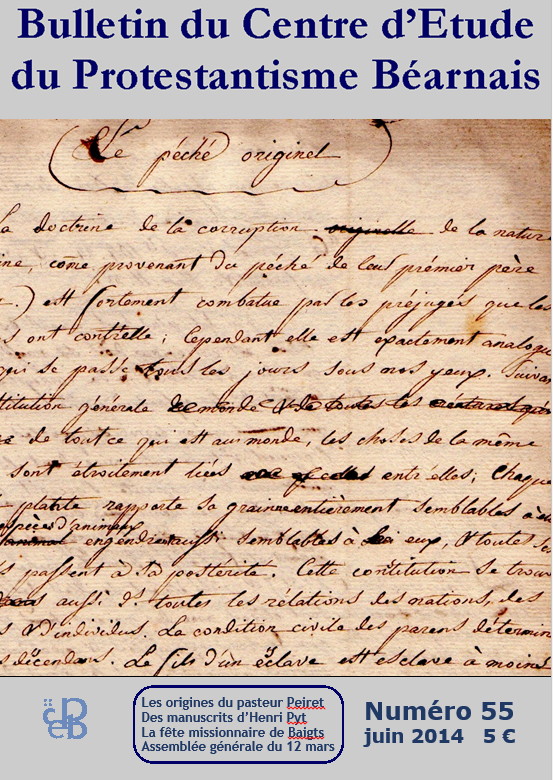 Bulletin du Centre d'Etude
du Protestantisme Béarnais
Le péché originel
la doctrine de la corruption originelle de la natur
ine, come provenant du péché de leur prémier père
.) est fortement combatue par les préjugés que les
s ont contr'elle ; cependant elle est exactement analogu
qui se passe tous les jours sous nos yeux. Suivan
titution générale du monde & de toutes les créatures
de tout ce qui est au monde, les choses de la même
sont étroitement liées entr'elles; chaque
plante rapporte sa graine entièrement semblables à
espèces d'animaux
animal engendre aussi semblables à eux, & toutes
s passent à sa postérité. Cette contitution se trouv
aussi ds. toutes les rélations des nations, des
s & d'individus. La condition civile des parens détermin
s décendans. Le fils d'un éclave est esclave à moins
Les origines du pasteur Peiret
Des manuscrits d'Henri Pyt
La fête missionnaire de Baigts
Assemblée générale du 12 mars
Numéro 55
juin 2014 5 €